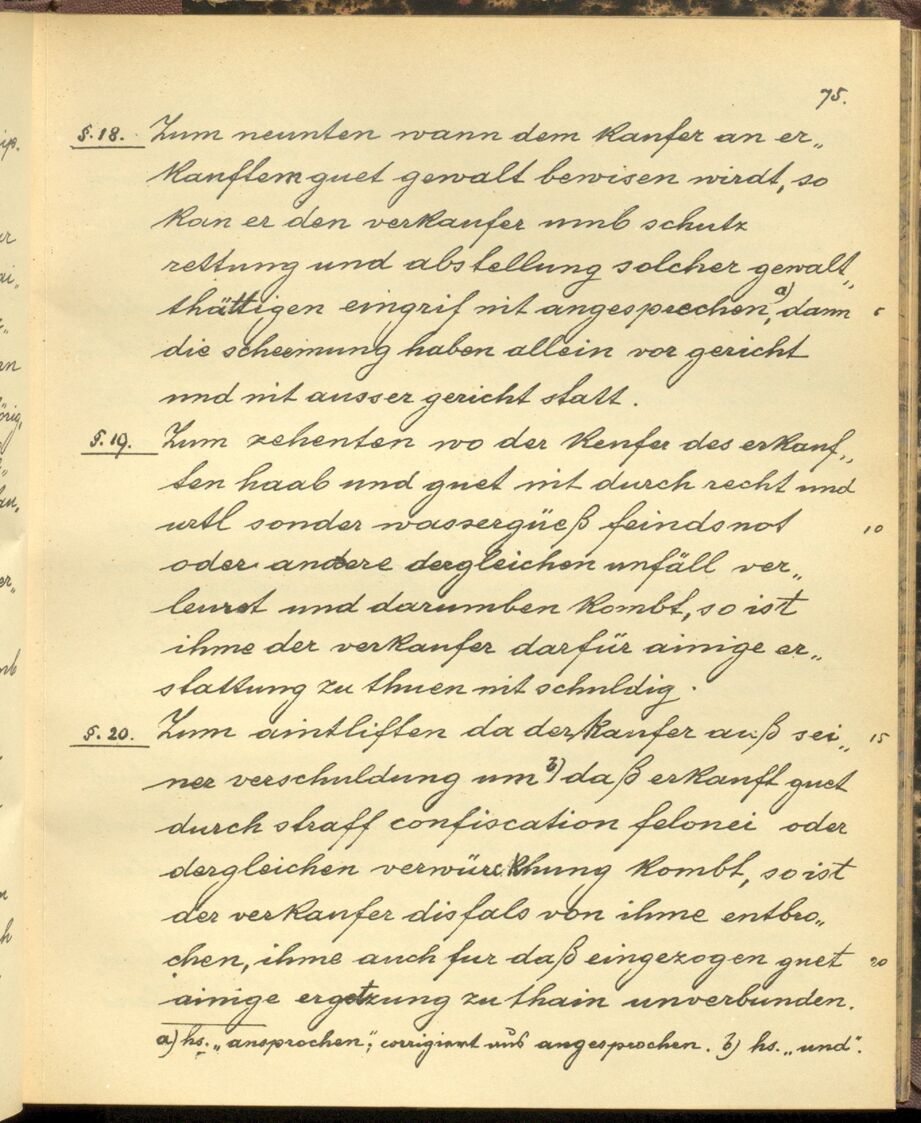 75.
§. 18. Zum neunten wann dem kaufer an er„
kauftem guet gewalt bewisen wirdt, so
kan er den verkaufer umb schutz
rettung und abstellung solcher gewalt„
thättigen eingrif nit angesprechen,a) dann 5
die scheemung haben allein vor gericht
und nit ausser gericht statt.
§. 19. Zum zehenten wo der keufer des erkauf„
ten haab und guet nit durch recht und
urtl sonder wassergüeß feindsnot 10
oder andere dergleichen unfäll ver„
leurst und darumben kombt, so ist
ihme der verkaufer darfür ainige er„
stattung zu thuen nit schuldig.
§. 20. Zum aintliften da der kaufer auß sei„ 15
ner verschuldung um b) daß erkauft guet
durch straff confiscation felonei oder
dergleichen verwürckhung kombt, so ist
der verkaufer disfals von ihme entbro„
chen, ihme auch fur daß eingezogen guet 20
ainige ergetzung zu thain unverbunden.
a) hs. „ansprochen“; corrigiert aus angesprochen. b) hs. „und“.